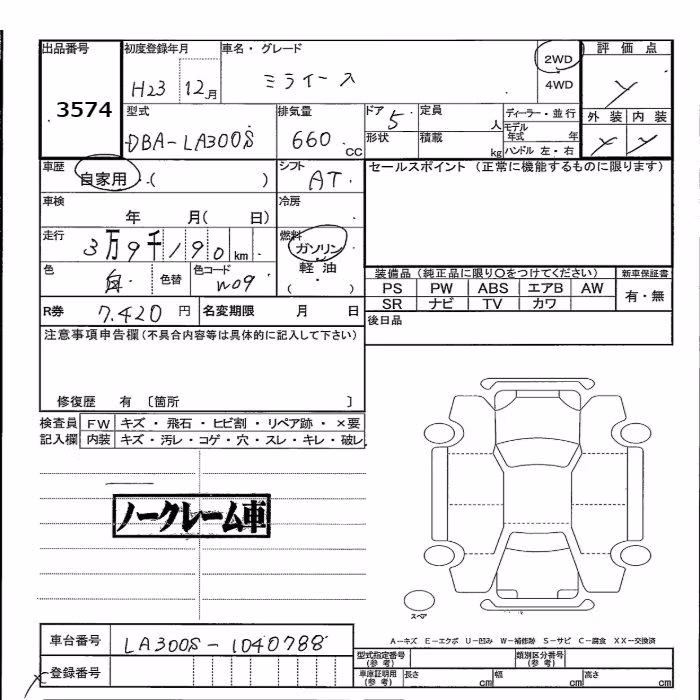 出品番号 初度登録年月 車名・グレード 2WD 評価点
3574 H23 12月 ミライース 4WD
型式 排気量 ドア 5 定員 人 ディーラー・並行 外装 内装
DBA-LA300S 660 CC 形状 積載 kg モデル年式 年
ハンドル 左・右
車歴 自家用 ( ) シフト AT セールスポイント (正常に機能するものに限ります)
車検 年 月( 日) 冷房
走行 3万9千190km 燃料 ガソリン
軽油
( )
色 白 色替 色コード W09 装備品 (純正品に限り○をつけてください) 新車保証書
PS PW ABS エアB AW 有・無
SR ナビ TV カワ
R券 7.420 円 名変期限 月 日 後日品
注意事項申告欄(不具合内容等は具体的に記入して下さい)
修復歴 有 〔箇所 〕
検査員 FW キズ・飛石・ヒビ割・リペア跡・×要
記入欄 内装 キズ・汚レ・コゲ・穴・スレ・キレ・破レ
ノークレーム車
スペア
A-キズ E-エクボ U-凹み W-補修跡 S-サビ C-腐食 XX-交換済
車台番号 LA300S-1040788 型式指定番号(参考) 類別区分番号(参考)
登録番号 車庫証明用(参考) 長さ cm 幅 cm 高さ cm